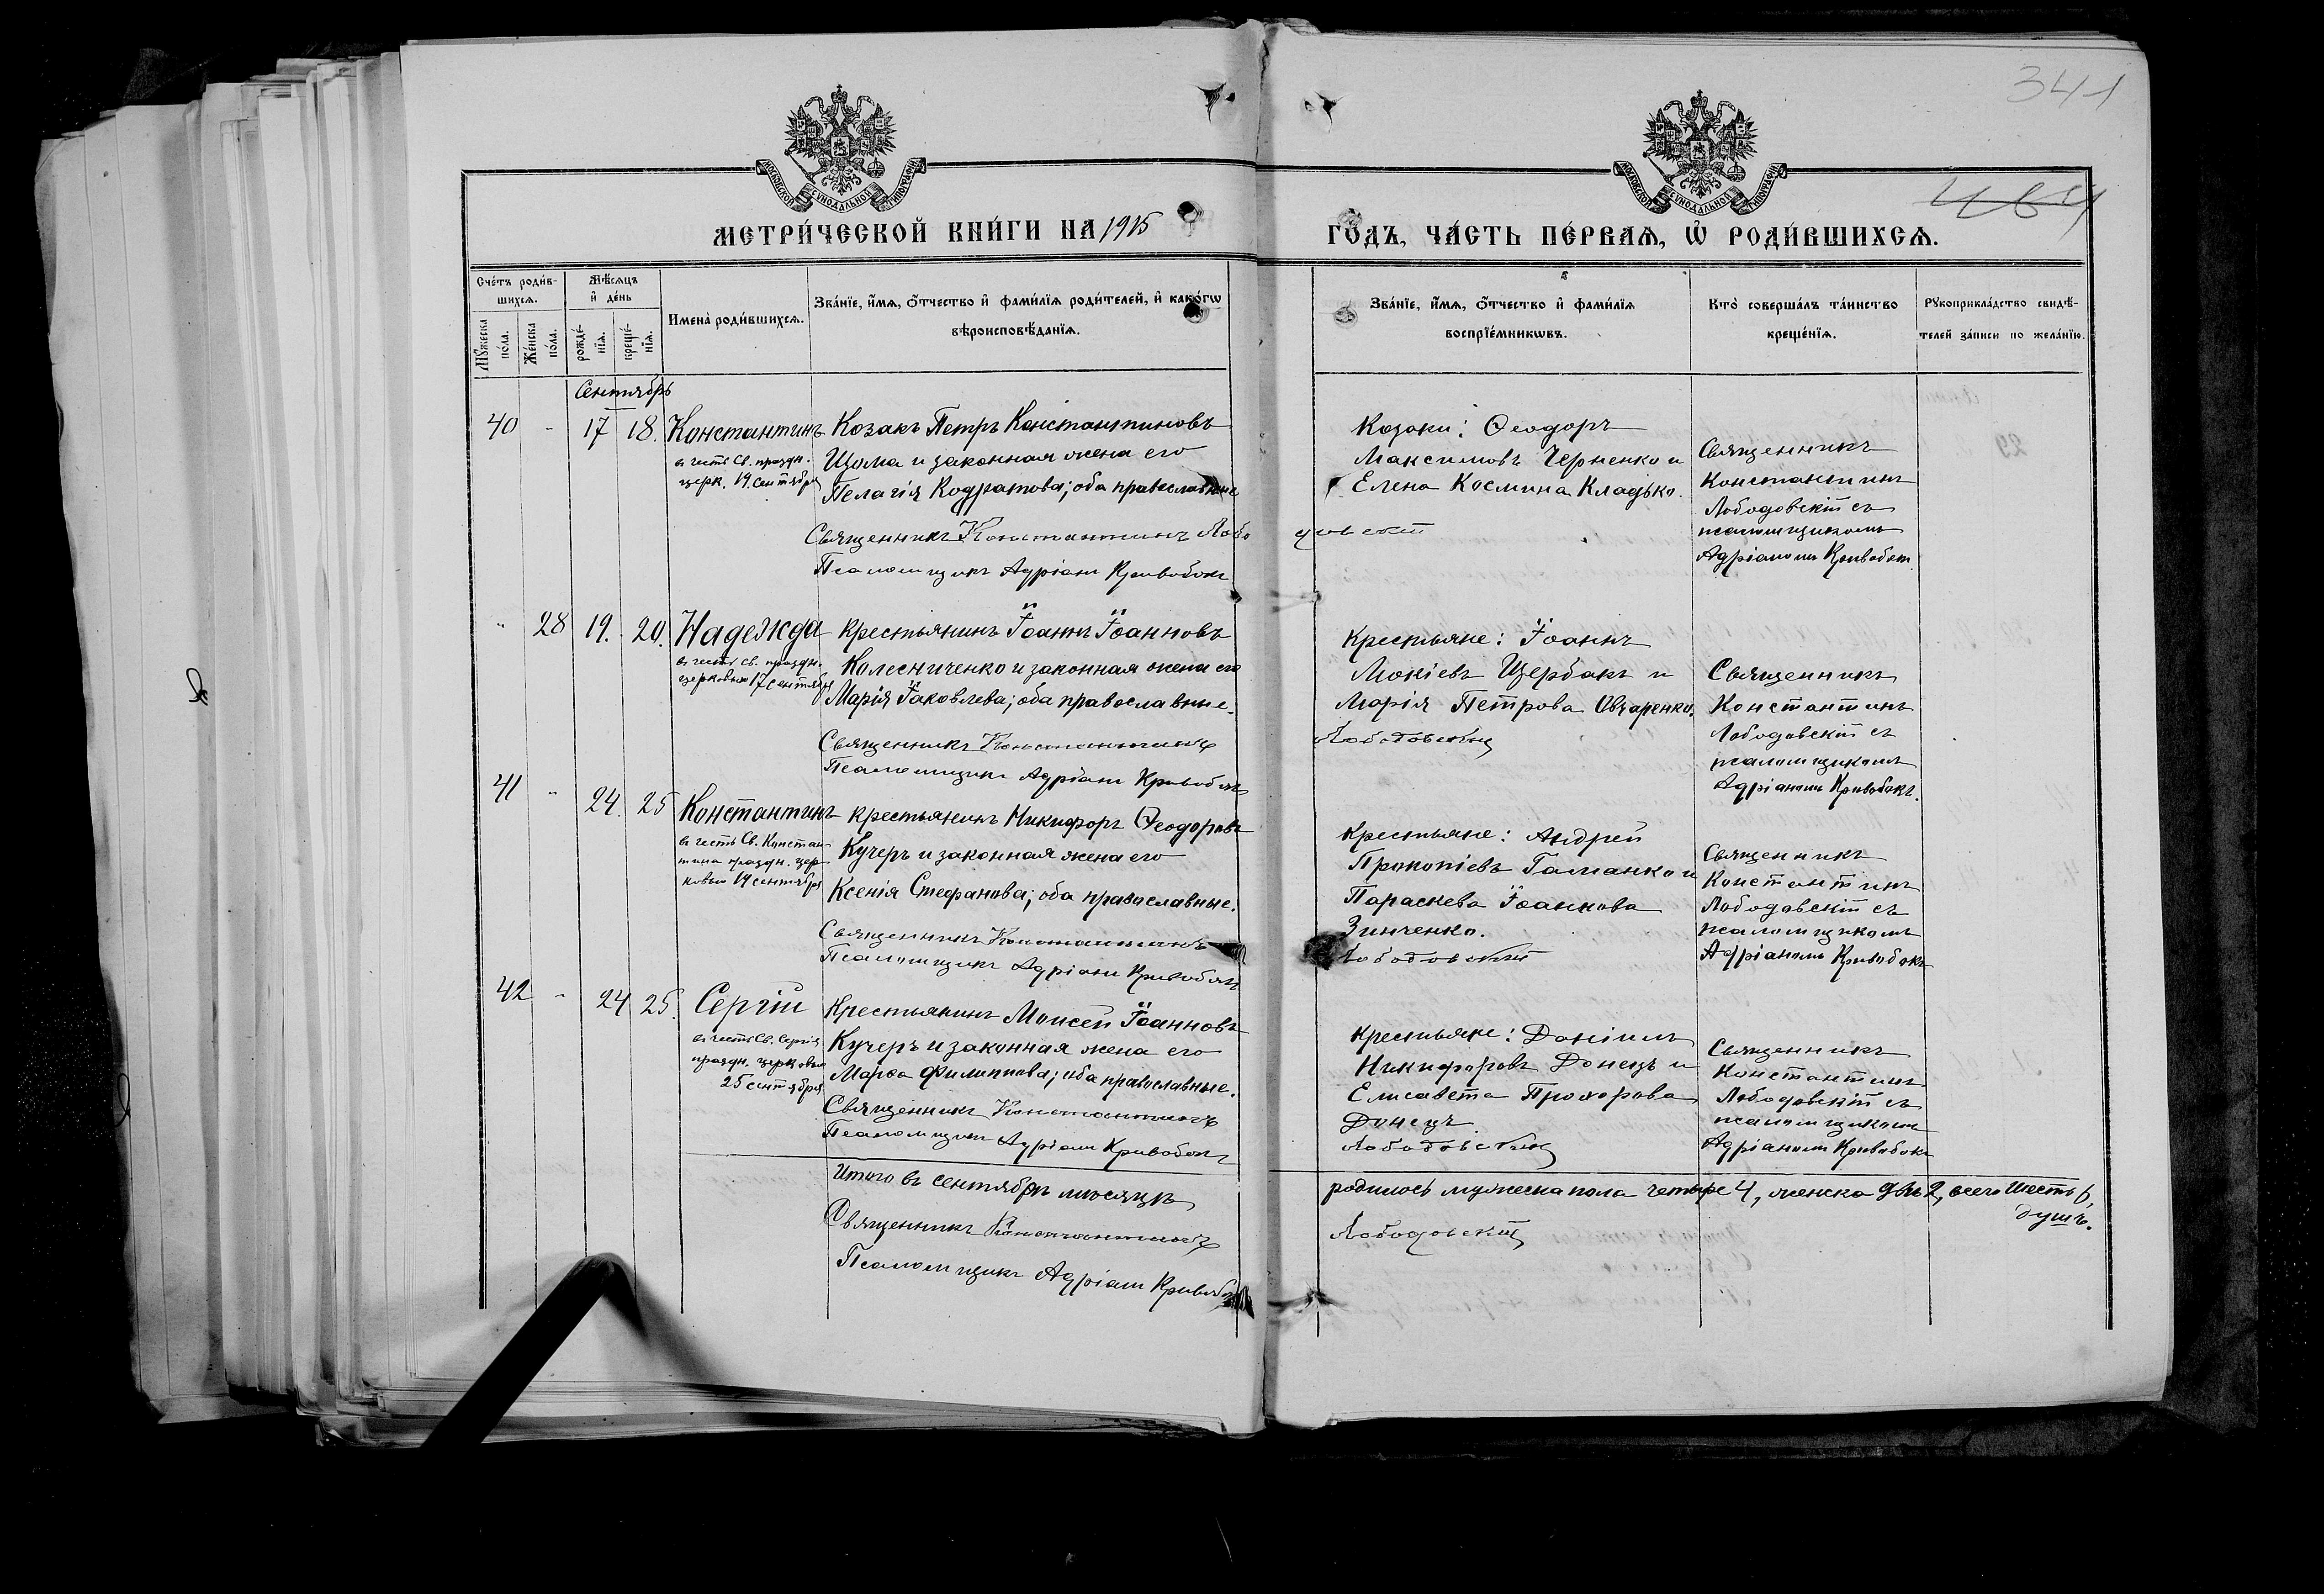 341
464
МОСКОВСКОЙ СѴНОДАЛЬНОЙ ТИПОГРАФІИ
МОСКОВСКОЙ СѴНОДАЛЬНОЙ ТИПОГРАФІИ
МЕТРИ́ЧЕСКОЙ КНИ́ГИ НА 1915
ГО́ДЪ, ЧА́СТЬ ПЕ́РВАѦ, Ѽ РОДИ́ВШИХСѦ.
Сче́тъ роди́в-
шихсѧ.
Мꙋ́жеска
по́ла.
Же́нска
по́ла.
Мѣ́сѧцъ
и҆ де́нь
рожде́-
нїѧ.
креще́-
нїѧ.
Имена̀ роди́вшихсѧ.
Зва́нїе, и҆́мѧ, ѻ҆́тчество и҆ фами́лїѧ роди́телей, и҆ како́гѡ
вѣроисповѣ́данїѧ.
Зва́нїе, и҆́мѧ, ѻ҆́тчество и҆ фами́лїѧ
воспрїе́мникѡвъ.
Кто̀ соверша́лъ та́инство
креще́нїѧ.
Рꙋкоприкла́дство свидѣ́-
телей за́писи по жела́нїю.
Сентябрь
40 - 17 18. Константинъ
въ честь Св. праздн.
церк. 19 сентября
Козакъ Петръ Константиновъ
Щома и законная жена его
Пелагія Кодратова; оба православные
Священникъ Константинъ Лобо
довскій
Псаломщикъ Адріанъ Кривобокъ
Козаки: Ѳеодоръ
Максимовъ Черненко и
Елена Космина Кладько.
Священникъ
Константинъ
Лободовскій съ
псаломщикомъ
Адріаномъ Кривобок
" 28 19. 20. Надежда
въ честь св. праздн.
церковью 17 сентября
Крестьянинъ Іоаннъ Іоанновъ
Колесниченко и законная жена его
Марія Іаковлева; оба православные.
Священникъ Константинъ
Лободовскій
Псаломщикъ Адріанъ Кривобокъ
Крестьяне: Іоаннъ
Мокіевъ Щербакъ и
Марія Петрова Овчаренко.
Священникъ
Константинъ
Лободовскій съ
псаломщикомъ
Адріаномъ Кривобокъ.
41 " 24. 25 Константинъ
въ честь Св. Констан
тина праздн. цер
ковью 19 сентября
Крестьянинъ Никифоръ Ѳеодоровъ
Кучеръ и законная жена его
Ксенія Стефанова; оба православные.
Священникъ Константинъ
Лободовскій
Псаломщикъ Адріанъ Кривобокъ
Крестьяне: Андрей
Прокопіевъ Гаманко и
Параскева Іоаннова
Зинченко.
Священникъ
Константинъ
Лободовскій съ
псаломщикомъ
Адріаномъ Кривобокъ
42 - 24 25. Сергій
въ честь Св. Сергія
праздн. церковью
25 сентября
Крестьянинъ Моисей Іоанновъ
Кучеръ и законная жена его
Марѳа Филиппова; оба православные.
Священникъ Константинъ
Лободовскій
Псаломщикъ Адріанъ Кривобокъ
Крестьяне: Даніилъ
Никифоровъ Донецъ и
Елисавета Прохорова
Донецъ
Священникъ
Константинъ
Лободовскій съ
псаломщикомъ
Адріаномъ Кривобокъ
Итого въ сентябрѣ мѣсяцѣ
родилось мужеска пола четыре 4, женска двѣ 2, всего шесть 6
душъ.
Священникъ Константинъ
Лободовскій
Псаломщикъ Адріанъ Кривобо